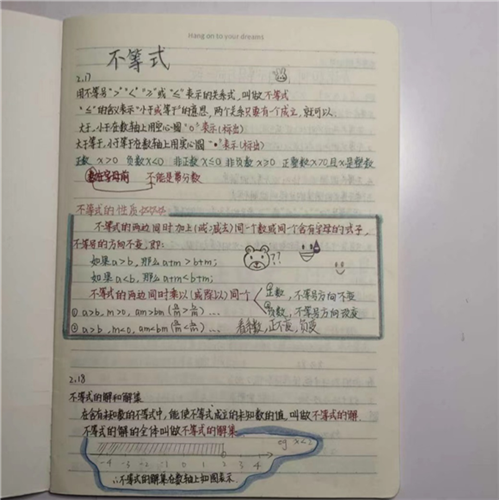 Hang on to your dreams
不等式
2.17
用不等号">""<""≥"或"≤"表示的关系式,叫做不等式
"≤"的含义表示"小于或等于"的意思,两个关系只要有一个成立,就可以.
大于,小于在数轴上用空心圆"o"表示(标出)
大于等于,小于等于在数轴上用实心圆"•"表示(标出)
正数 x>0 负数x<0 非正数x≤0 非负数x≥0 正整数x>0且x是整数
数在字母前 不能是带分数
不等式的性质
不等式的两边同时加上(或减去)同一个数或同一个含有字母的式子,
不等号的方向不变,即:
如果a>b,那么a+m>b+m;
如果a<b,那么a+m<b+m;
不等式的两边同时乘以(或除以)同一个 正数,不等号方向不变
负数,不等号方向改变
① a>b,m>0,am>bm(a/m>b/m)...
② a>b,m<0,am<bm(a/m<b/m)... 看系数,正不变,负变
2.18
不等式的解和解集
在含有未知数的不等式中,能使不等式成立的未知数的值,叫做不等式的解.
不等式的解的全体叫做不等式的解集
eg x<2
-4 -3 -2 -1 0 1 2 3 4
∴不等式的解集在数轴上如图表示